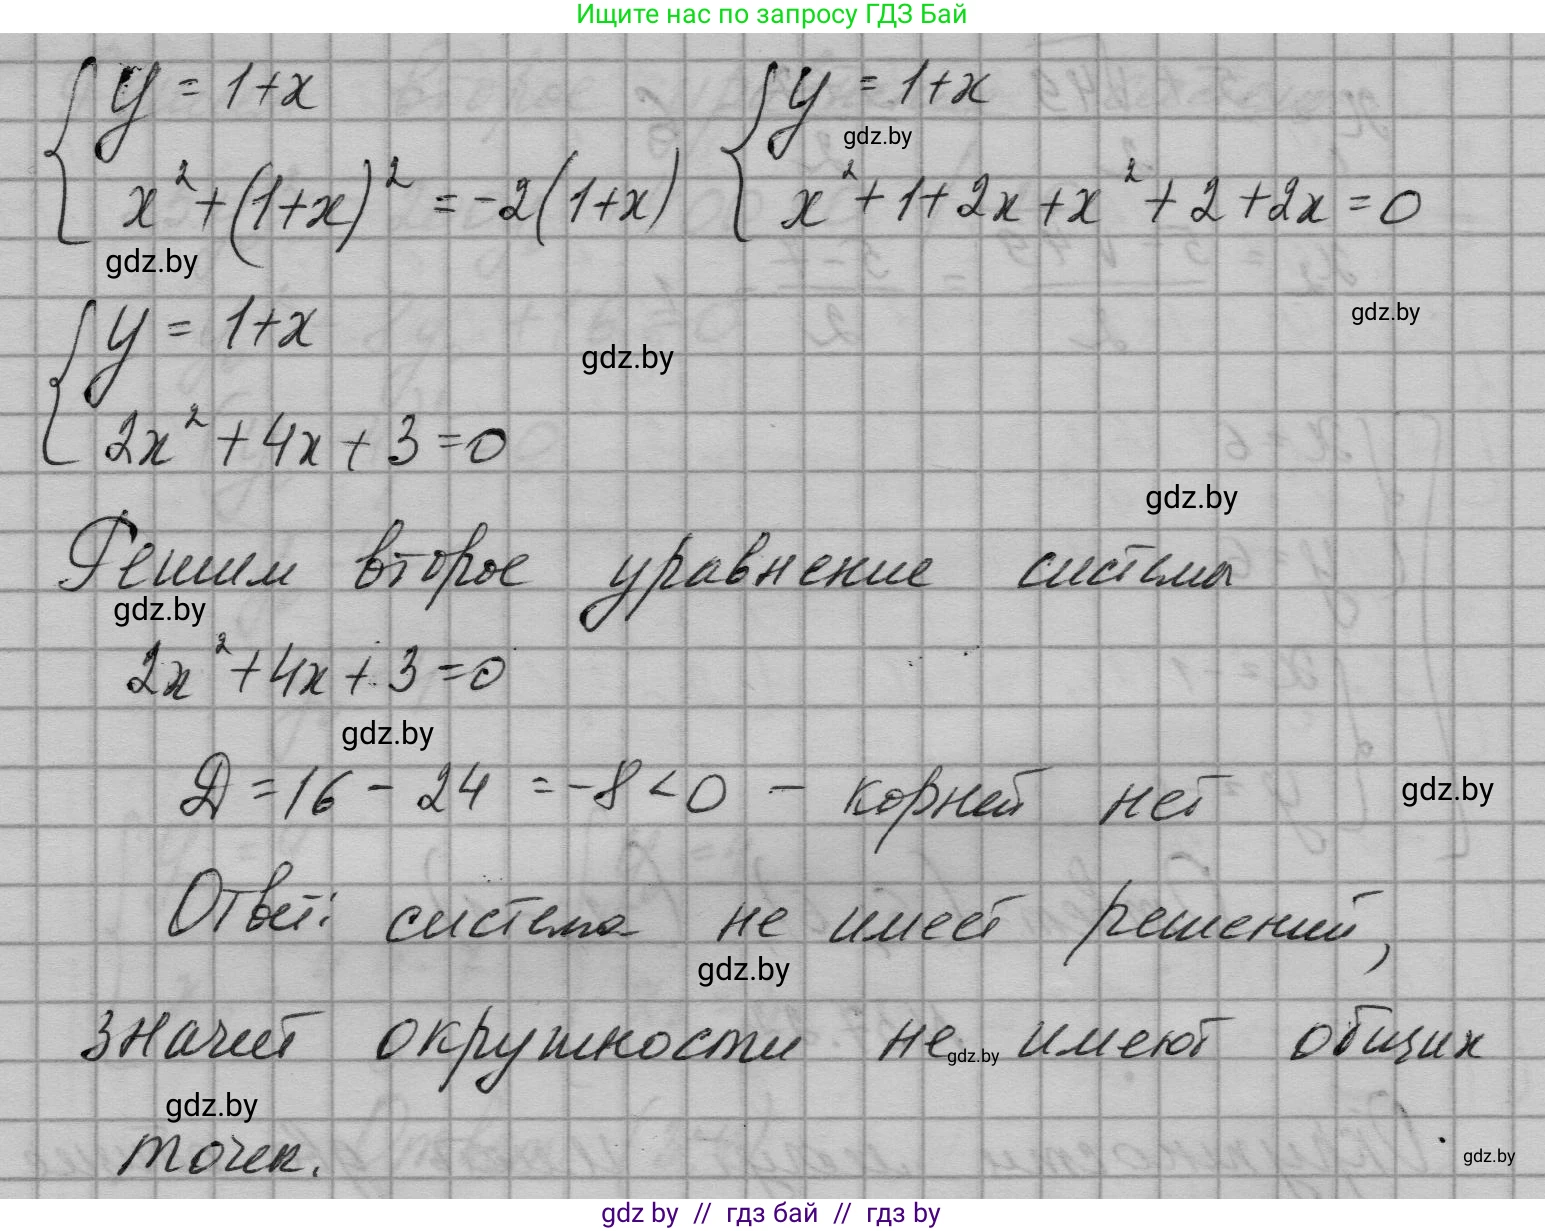 Ищите нас по запросу ГДЗ Бай
y = 1+x
y = 1+x
gdz.by
x²+(1+x)² = -2(1+x)
x²+1+2x+x²+2+2x=0
gdz.by
y = 1+x
gdz.by
gdz.by
2x²+4x+3=0
gdz.by
Решим второе уравнение системы
gdz.by
2x²+4x+3=0
gdz.by
Д=16-24=-8<0 - корней нет
gdz.by
Ответ: система не имеет решений,
gdz.by
значит окружности не имеют общих
gdz.by
gdz.by
точек.
gdz.by
gdz by // гдз бай // гдз by